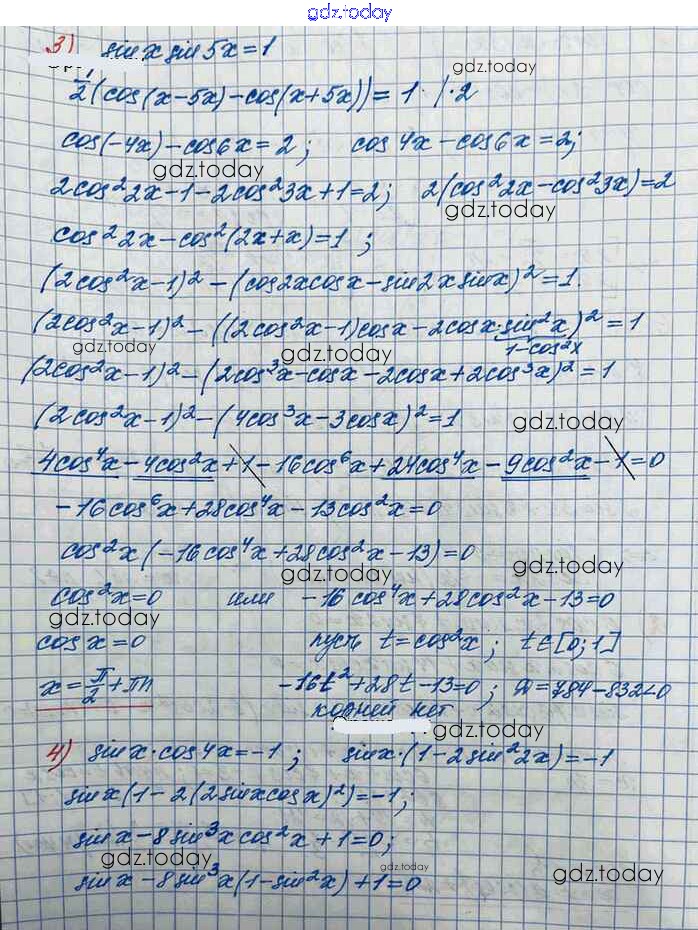 gdz.today
3) sin x sin 5x = 1
gdz.today
1/2 (cos(x-5x) - cos(x+5x)) = 1 · / · 2
cos(-4x) - cos 6x = 2 ; cos 4x - cos 6x = 2;
gdz.today
2cos²2x - 1 - 2cos²3x + 1 = 2; 2(cos²2x - cos²3x) = 2
gdz.today
cos²2x - cos²(2x+x) = 1 ;
(2cos²x - 1)² - (cos2x cosx - sin2x sinx)² = 1.
(2cos²x - 1)² - ((2cos²x - 1)cosx - 2cosx · sin²x)² = 1
1-cos²x
gdz.today
gdz.today
(2cos²x - 1)² - (2cos³x - cosx - 2cosx + 2cos³x)² = 1
(2cos²x - 1)² - (4cos³x - 3cosx)² = 1
gdz.today
4cos⁴x - 4cos²x + 1 - 16cos⁶x + 24cos⁴x - 9cos²x - 1 = 0
-16cos⁶x + 28cos⁴x - 13cos²x = 0
cos²x (-16cos⁴x + 28cos²x - 13) = 0
gdz.today
cos²x = 0 или -16cos⁴x + 28cos²x - 13 = 0
gdz.today
cos x = 0 пусть t = cos²x ; t ∈ [0; 1]
x = π/2 + πn -16t² + 28t - 13 = 0 ; D = 784 - 832 < 0
корней нет
gdz.today
4) sinx · cos4x = -1 ; sinx · (1 - 2sin²2x) = -1
sinx (1 - 2(2sinxcosx)²) = -1 ;
sinx - 8sin³x cos²x + 1 = 0;
gdz.today
gdz.today
gdz.today
sinx - 8sin³x (1 - sin²x) + 1 = 0